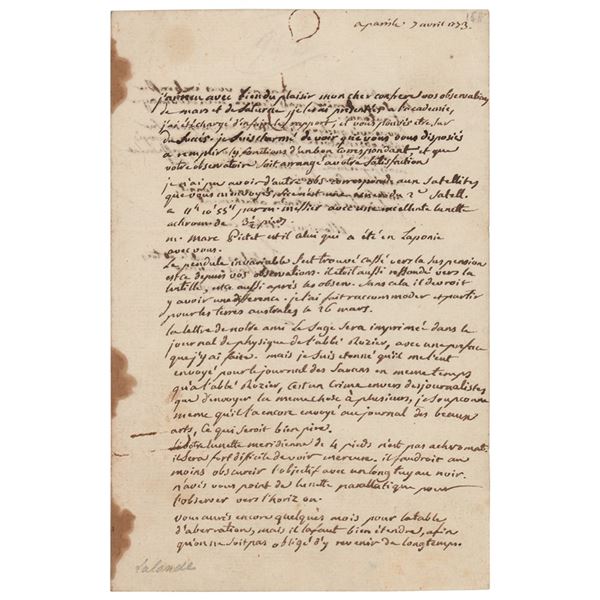 a paris le 7 avril 1773.
j'ai reçu avec bien du plaisir mon cher confrere vos observations
de mars et de saturne je les ai présentées a l'academie,
j'ai été chargé d'en faire le rapport, et vous pouvés etre sur
du succès. je suis charmé de voir que vous vous disposiés
a remplir les fonctions d'un bon correspondant et que
votre observatoire soit arrangé a votre satisfaction
je n'ai pu avoir d'autre obs correspond. aux satellites
que vous m'envoyés, si ce n'est une Satell.
a 11h 10' 55" par m. messier avec une excellente lunette
achrom. de 3½ pieds.
m. Marc Pictet est il celui qui a été en Laponie
avec vous.
Le pendule invariable s'est trouvé cassé vers la suspension
est ce depuis vos observations. il etoit aussi ressoudé vers la
lentille, est ce aussi après les observ. sans cela il devroit
y avoir une difference. je l'ai fait raccommoder et partir
pour les terres australes le 26 mars.
la lettre de notre ami Le Sage sera imprimée dans le
journal de physique de l'abbé Rozier, avec une preface
que j'y ai faite. mais je suis etonné qu'il me l'eut
envoyé pour le journal des savans en meme temps
qu'a l'abbé Rozier, c'est un crime envers des journalistes
que d'envoyer la meme chose à plusieurs, je soupconne
meme qu'il l'a encore envoyé au journal des beaux
arts, ce qui seroit bien pire.
lunette meridienne de 4 pieds n'est pas achromati.
il sera fort difficile de voir mercure. il faudroit au
moins obscurcir l'objectif avec un long tuyau noir.
n'avés vous point de lunette parallatique pour
l'observer vers l'horizon.
vous aurés encore quelques mois pour la table
d'aberration, mais il la faut bien étendre, afin
qu'on ne soit pas obligé d'y revenir de longtemps.
Lalande